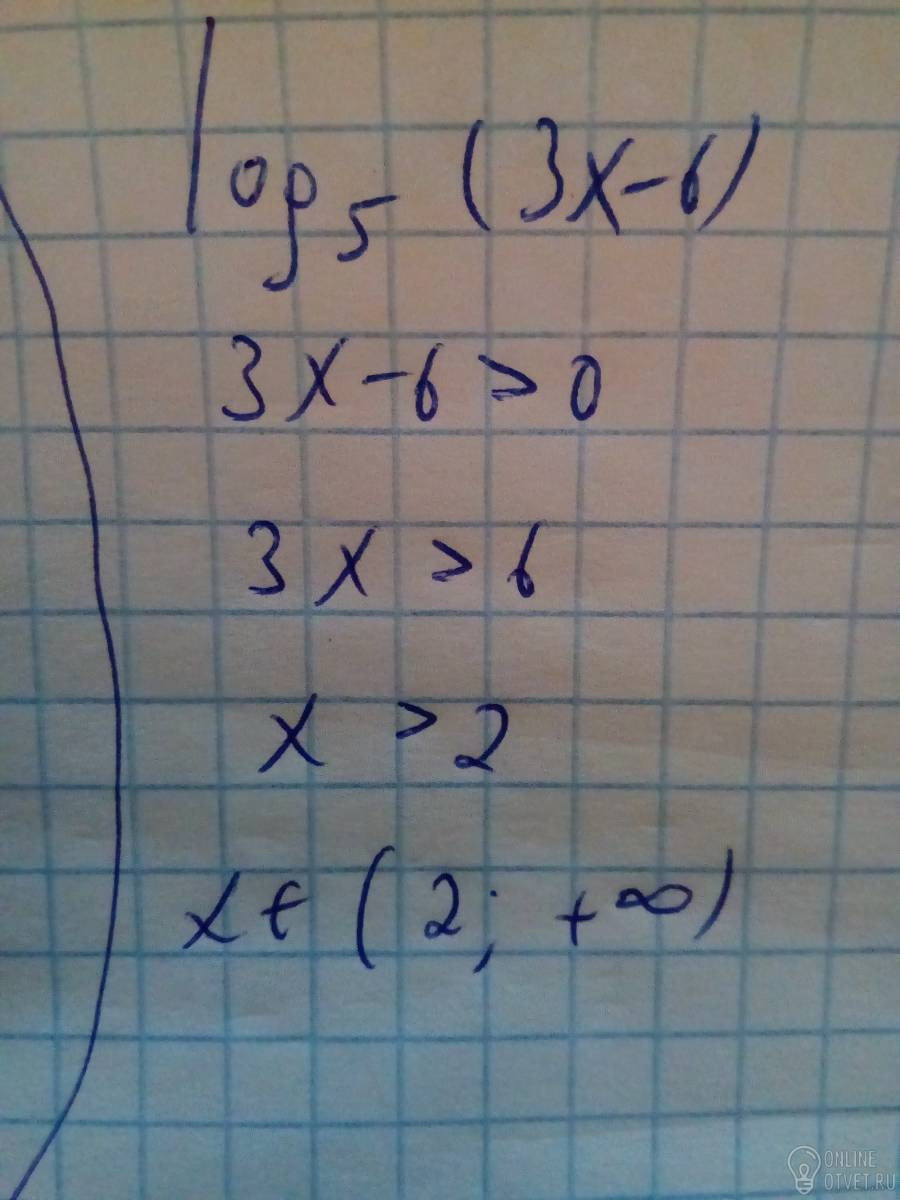 log₅ (3x-6)
3x-6>0
3x>6
x>2
x∈(2; +∞)
ONLINE
OTVET.RU